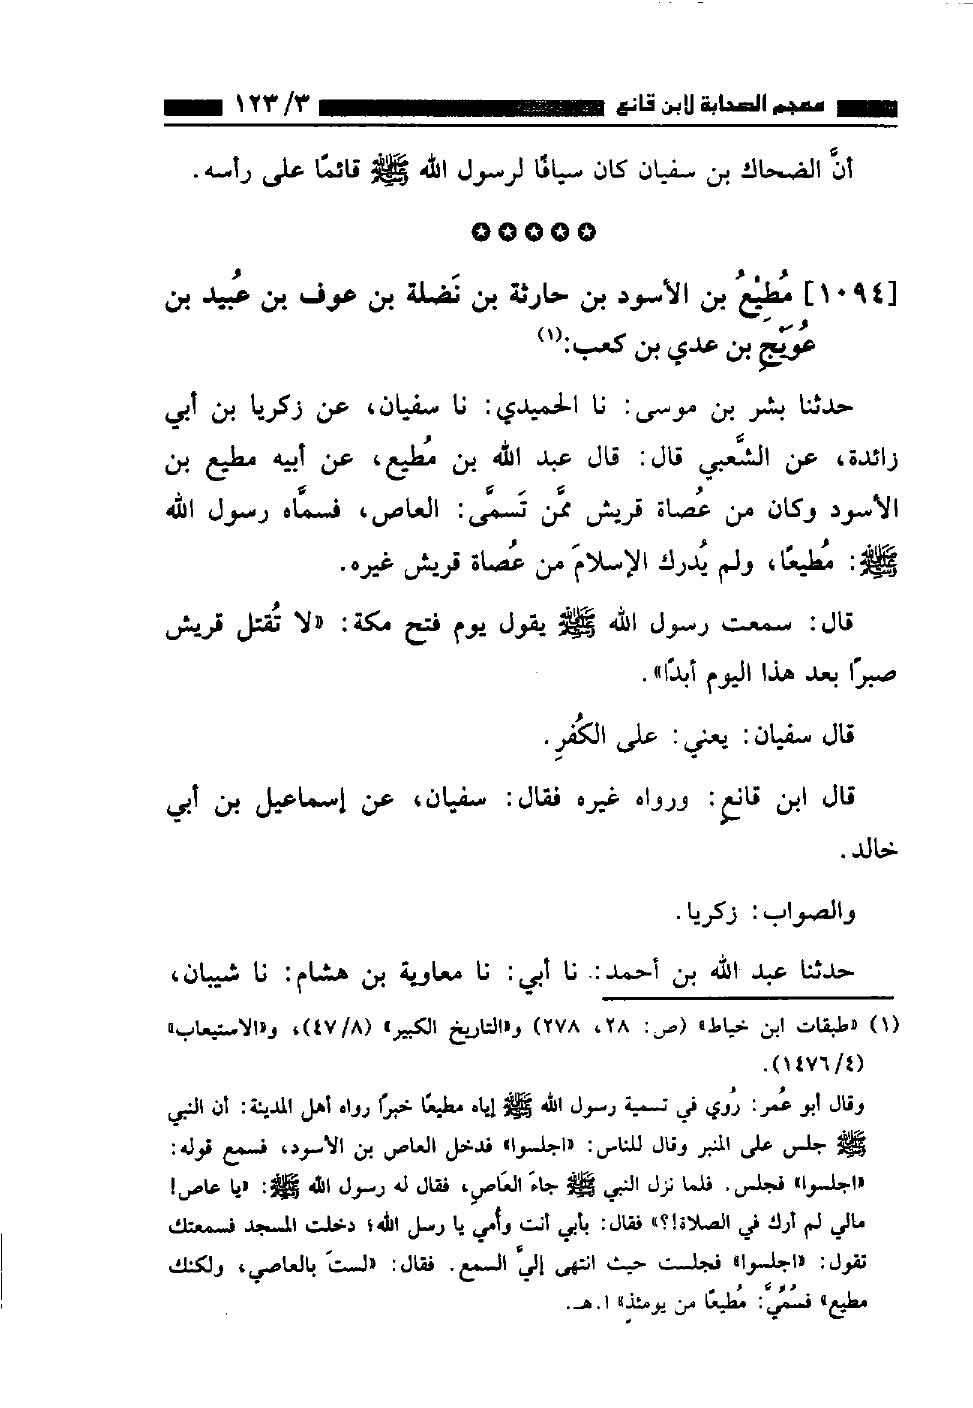 معجم الصحابة لابن قانع ٣/ ١٢٣
أنَّ الضحاك بن سفيان كان سيافًا لرسول الله ﷺ قائمًا على رأسه.
✪✪✪✪✪
[١٠٩٤] مُطِيْعُ بن الأسود بن حارثة بن نَضلة بن عوف بن عُبيد بن
عُوَيْجِ بن عدي بن كعب:(١)
حدثنا بشر بن موسى: نا الحميدي: نا سفيان، عن زكريا بن أبي
زائدة، عن الشَّعبي قال: قال عبد الله بن مُطيع، عن أبيه مطيع بن
الأسود وكان من عُصاة قريش ممَّن تَسمَّى: العاص، فسمَّاه رسول الله
ﷺ: مُطيعًا، ولم يُدرك الإسلامَ من عُصاة قريش غيره.
قال: سمعت رسول الله ﷺ يقول يوم فتح مكة: «لا تُقتل قريش
صبرًا بعد هذا اليوم أبدًا».
قال سفيان: يعني: على الكُفرِ.
قال ابن قانعٍ: ورواه غيره فقال: سفيان، عن إسماعيل بن أبي
خالد.
والصواب: زكريا.
حدثنا عبد الله بن أحمد: نا أبي: نا معاوية بن هشام: نا شيبان،
(١) «طبقات ابن خياط» (ص: ٢٨، ٢٧٨) و«التاريخ الكبير» (٤٧/٨)، و«الاستيعاب»
(١٤٧٦/٤).
وقال أبو عُمر: رُوي في تسمية رسول الله ﷺ إياه مطيعًا خبرًا رواه أهل المدينة: أن النبي
ﷺ جلس على المنبر وقال للناس: «اجلسوا» فدخل العاص بن الأسود، فسمع قوله:
«اجلسوا» فجلس. فلما نزل النبي ﷺ جاءَ العَاصِ، فقال له رسول الله ﷺ: «يا عاص!
مالي لم أرك في الصلاة!؟» فقال: بأبي أنت وأُمي يا رسل الله؛ دخلت المسجد فسمعتك
تقول: «اجلسوا» فجلست حيث انتهى إليَّ السمع. فقال: «لستَ بالعاصي، ولكنك
مطيع» فسُمِّيَّ: مُطيعًا من يومئذٍ» ا.هـ.